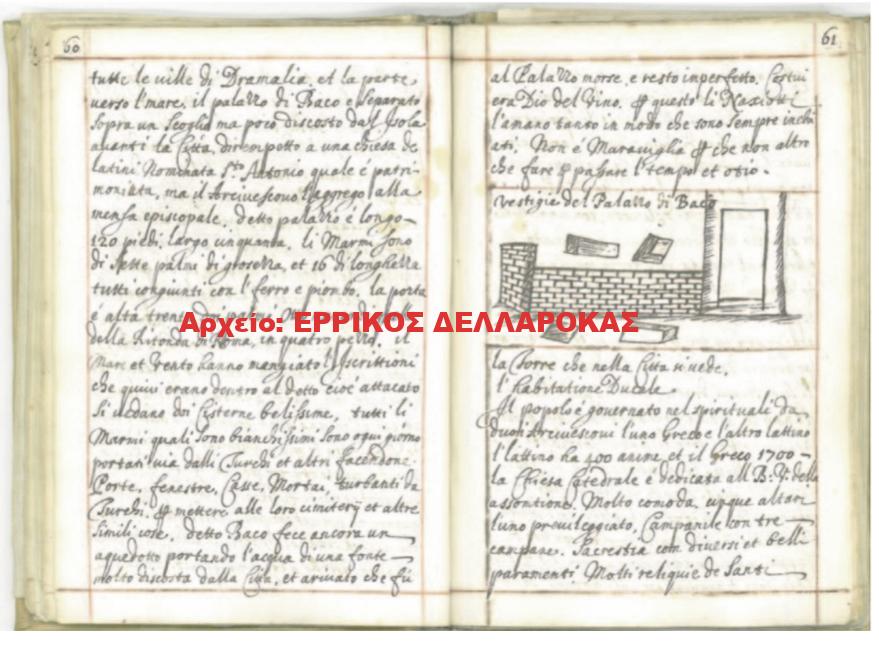 60
tutte le ville di Dramalia, et la parte
verso l'mare. il palazzo di Baco e separato
sopra un Scoglio ma poco discosto dal Isola
avanti la Citta, dirempetto a una chiesa de
latini Nominata S.to Antonio quale é patri-
moniata, ma il Arcivescovo l'aggrego alla
mensa episcopale, detto palazzo é longo
120 piedi, largo cinquanta. li Marmi sono
di sette palmi di grosezza, et 16 di longhezza
tutti congiunti con l'ferro e piombo. la porta
é alta trenta doi palmi
Αρχείο: ΕΡΡΙΚΟΣ ΔΕΛΛΑΡΟΚΑΣ
della Ritonda di Roma, in quatro pezzi. il
Mare et Vento hanno mangiato l'Iscrittioni
che quivi erano dentro al dotto cioé attacato
si vedano doi Cisterne belissime. tutti li
Marmi quali sono bianchissimi sono ogni giorno
portati via dalli Turchi et altri facendone
Porte, fenestre, Casse, Mortai, turbanti da
Turchi, ꝑ mettere alle loro cimiterÿ et altre
simili cose. detto Baco fece ancora un
aquedotto portando l'acqua di una fonte
molto discosta dalla Citta, et arivato che fú
61
al Palazzo morse, e resto inperfetto. Costui
era Dio del Vino. ꝑ questo li Naxiotti
l'amano tanto in modo che sono sempre inchi
ati. Non é Maraviglia ꝑche non altro
che fare ꝑ passare l'tempo et otio.
Vestigie del Palazzo di Baco
la Torre che nella Citta si vede,
l'habitatione Ducale
Il popolo é governato nel spirituali da
duoi Arcivescovi l'uno Greco e l'altro lattino
l'lattino ha 400 anime, et il Greco 1700
la Chiesa Catedrale é dedicata all B. V. della
assontione. Molto comoda, cinque altari
l'uno previleggiato, Campanile con tre
campane. Sacrestia con diversi et belli
paramenti. Molti reliquie de Santi